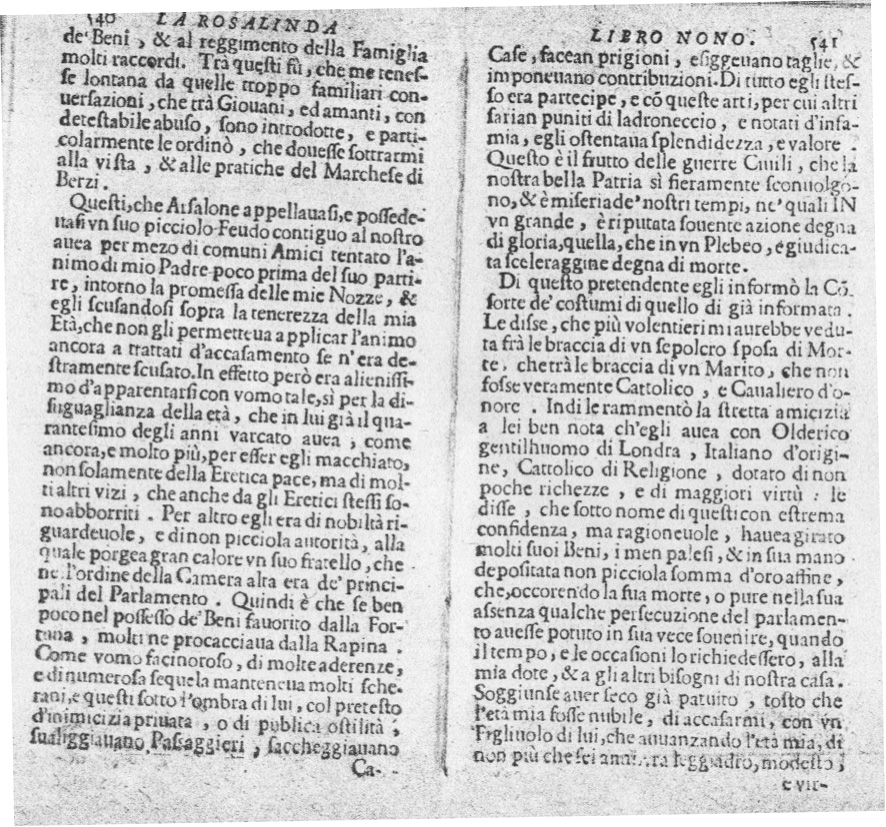 540 LA ROSALINDA
de' Beni, & al reggimento della Famiglia
molti raccordi. Trà questi fù, che me tenes-
se lontana da quelle troppo familiari con-
uersazioni, che trà Giouani, ed amanti, con
detestabile abuso, sono introdotte, e parti-
colarmente le ordinò, che douesse sottrarmi
alla vista, & alle pratiche del Marchese di
Berzi.
Questi, che Arsalone appellauasi, e possede-
uasi vn suo picciolo Feudo contiguo al nostro
auea per mezo di comuni Amici tentato l'a-
nimo di mio Padre poco prima del suo parti-
re, intorno la promessa delle mie Nozze, &
egli scusandosi sopra la tenerezza della mia
Età, che non gli permetteua applicar l'animo
ancora a trattati d'accasamento se n'era de-
stramente scusato. In effetto però era alienissi-
mo d'apparentarsi con vomo tale, sì per la di-
suguaglianza della età, che in lui già il qua-
rantesimo degli anni varcato auea, come
ancora, e molto più, per esser egli macchiato,
non solamente della Eretica pace, ma di mol-
ti altri vizi, che anche da gli Eretici stessi so-
no abborriti. Per altro egli era di nobiltà ri-
guardeuole, e di non picciola autorità, alla
quale porgea gran calore vn suo fratello, che
ne l'ordine della Camera alta era de' princi-
pali del Parlamento. Quindi è che se ben
poco nel possesso de' Beni fauorito dalla For-
tuna, molti ne procacciaua dalla Rapina.
Come vomo facinoroso, di molte aderenze,
e di numerosa sequela manteneua molti sche-
rani, e questi sotto l'ombra di lui, col pretesto
d'inimicizia priuata, o di publica ostilità,
sualiggiauano Passaggieri, saccheggiauano
Ca-
LIBRO NONO. 541
Case, facean prigioni, esiggeuano taglie, &
imponeuano contribuzioni. Di tutto egli stes-
so era partecipe, e cō queste arti, per cui altri
sarian puniti di ladroneccio, e notati d'infa-
mia, egli ostentaua splendidezza, e valore.
Questo è il frutto delle guerre Ciuili, che la
nostra bella Patria sì fieramente sconuolgo-
no, & è miseria de' nostri tempi, ne' quali IN
vn grande, è riputata souente azione degna
di gloria, quella, che in vn Plebeo, è giudica-
ta sceleraggine degna di morte.
Di questo pretendente egli informò la Cō-
sorte de' costumi di quello di già informata.
Le disse, che più volentieri mi aurebbe vedu-
ta frà le braccia di vn sepolcro sposa di Mor-
te, che trà le braccia di vn Marito, che non
fosse veramente Cattolico, e Caualiero d'o-
nore. Indi le rammentò la stretta amicizia
a lei ben nota ch'egli auea con Olderico
gentilhuomo di Londra, Italiano d'origi-
ne, Cattolico di Religione, dotato di non
poche richezze, e di maggiori virtù: le
disse, che sotto nome di questi con estrema
confidenza, ma ragioneuole, hauea girato
molti suoi Beni, i men palesi, & in sua mano
depositata non picciola somma d'oro affine,
che, occorendo la sua morte, o pure nella sua
assenza qualche persecuzione del parlamen-
to auesse potuto in sua vece souenire, quando
il tempo, e le occasioni lo richiedessero, alla
mia dote, & a gli altri bisogni di nostra casa.
Soggiunse auer seco già patuito, tosto che
l'età mia fosse nubile, di accasarmi, con vn
Figliuolo di lui, che auuanzando l'età mia, di
non più che sei anni, era leggiadro, modesto,
e vir-